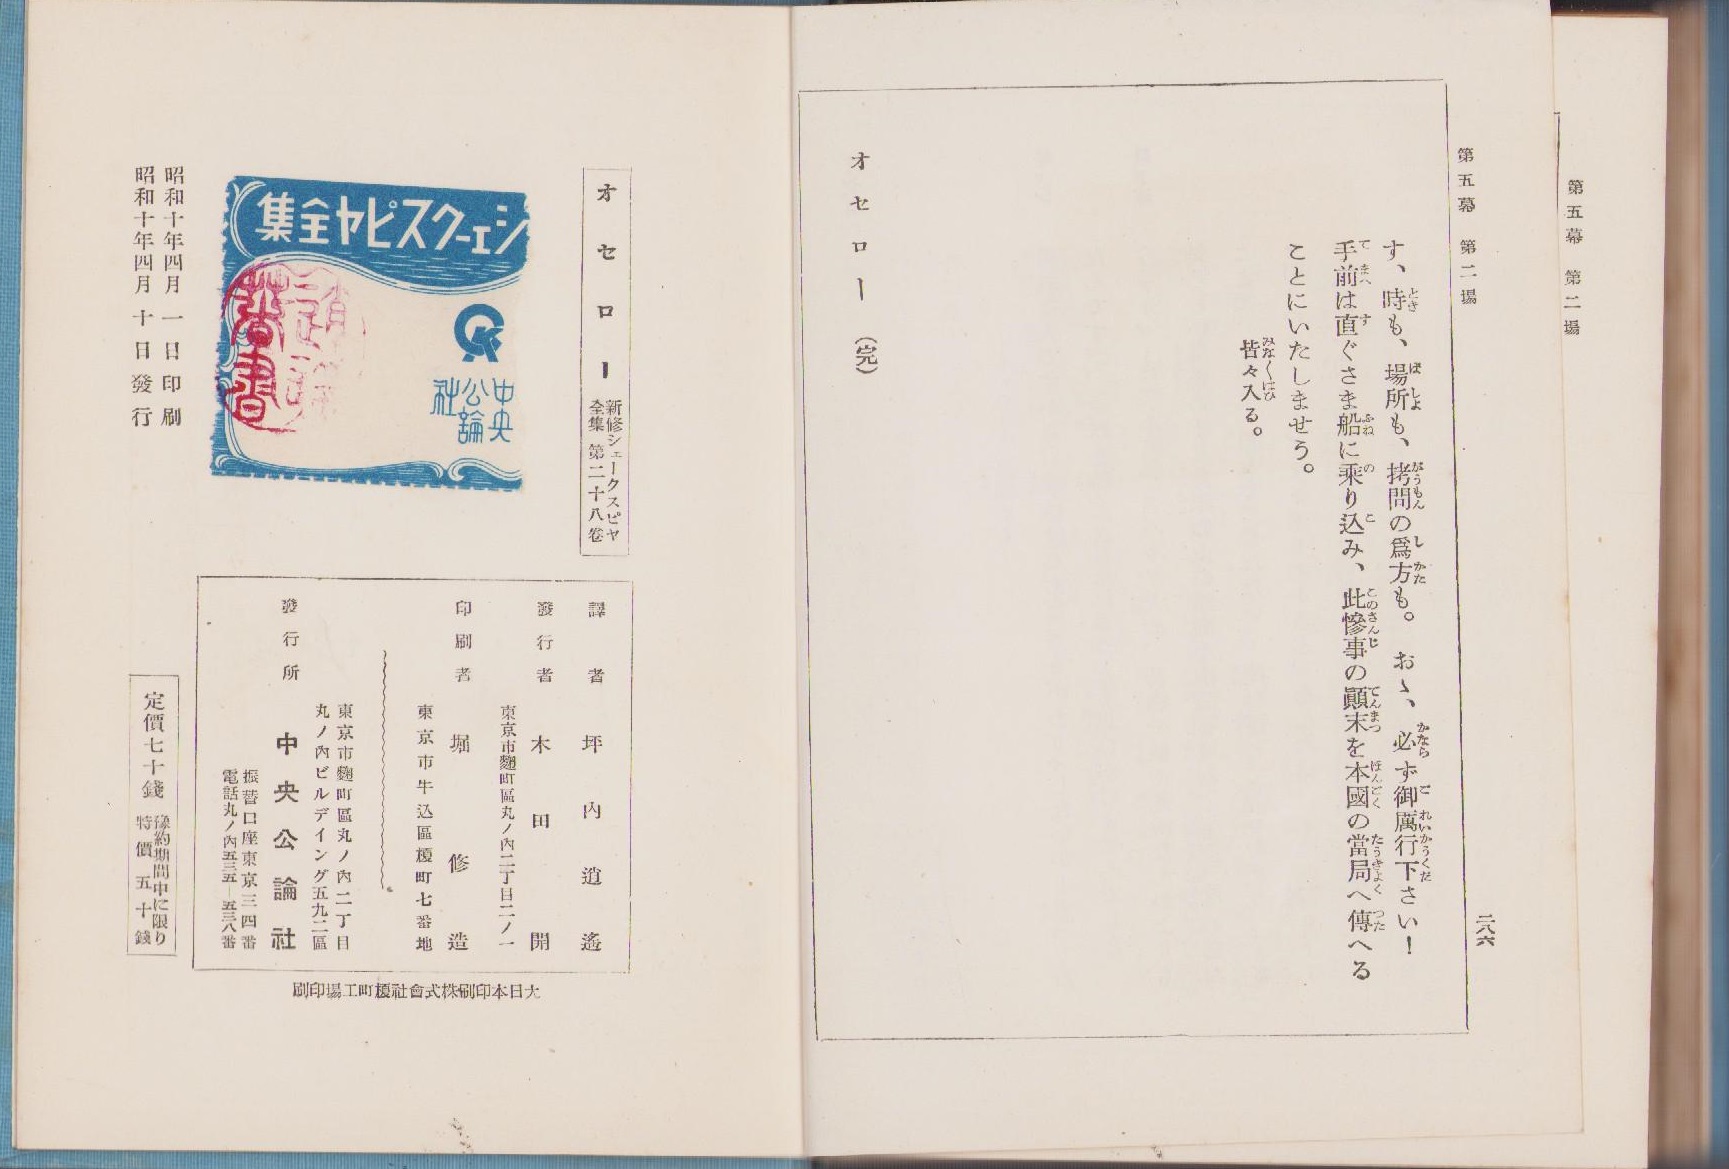 第五幕 第二場
第五幕 第二場
二八六
す、時も、場所も、拷問の爲方も。おゝ、必ず御厲行下さい！
手前は直ぐさま船に乘り込み、此慘事の顚末を本國の當局へ傳へる
ことにいたしませう。
皆々入る。
オセロー（完）
オセロー 新修シェークスピヤ
全集 第二十八卷
シェークスピヤ全集
中央
公論
社
昭和十年四月一日印刷
昭和十年四月十日發行
譯者 坪內逍遙
東京市麴町區丸ノ內二丁目二ノ一
發行者 木田開
印刷者 堀修造
東京市牛込區榎町七番地
東京市麴町區丸ノ內二丁目
丸ノ內ビルデイング五九二區
發行所 中央公論社
振替口座東京三四番
電話丸ノ內五三五—五三八番
定價七十錢 豫約期間中に限り
特價五十錢
大日本印刷株式會社榎町工場印刷